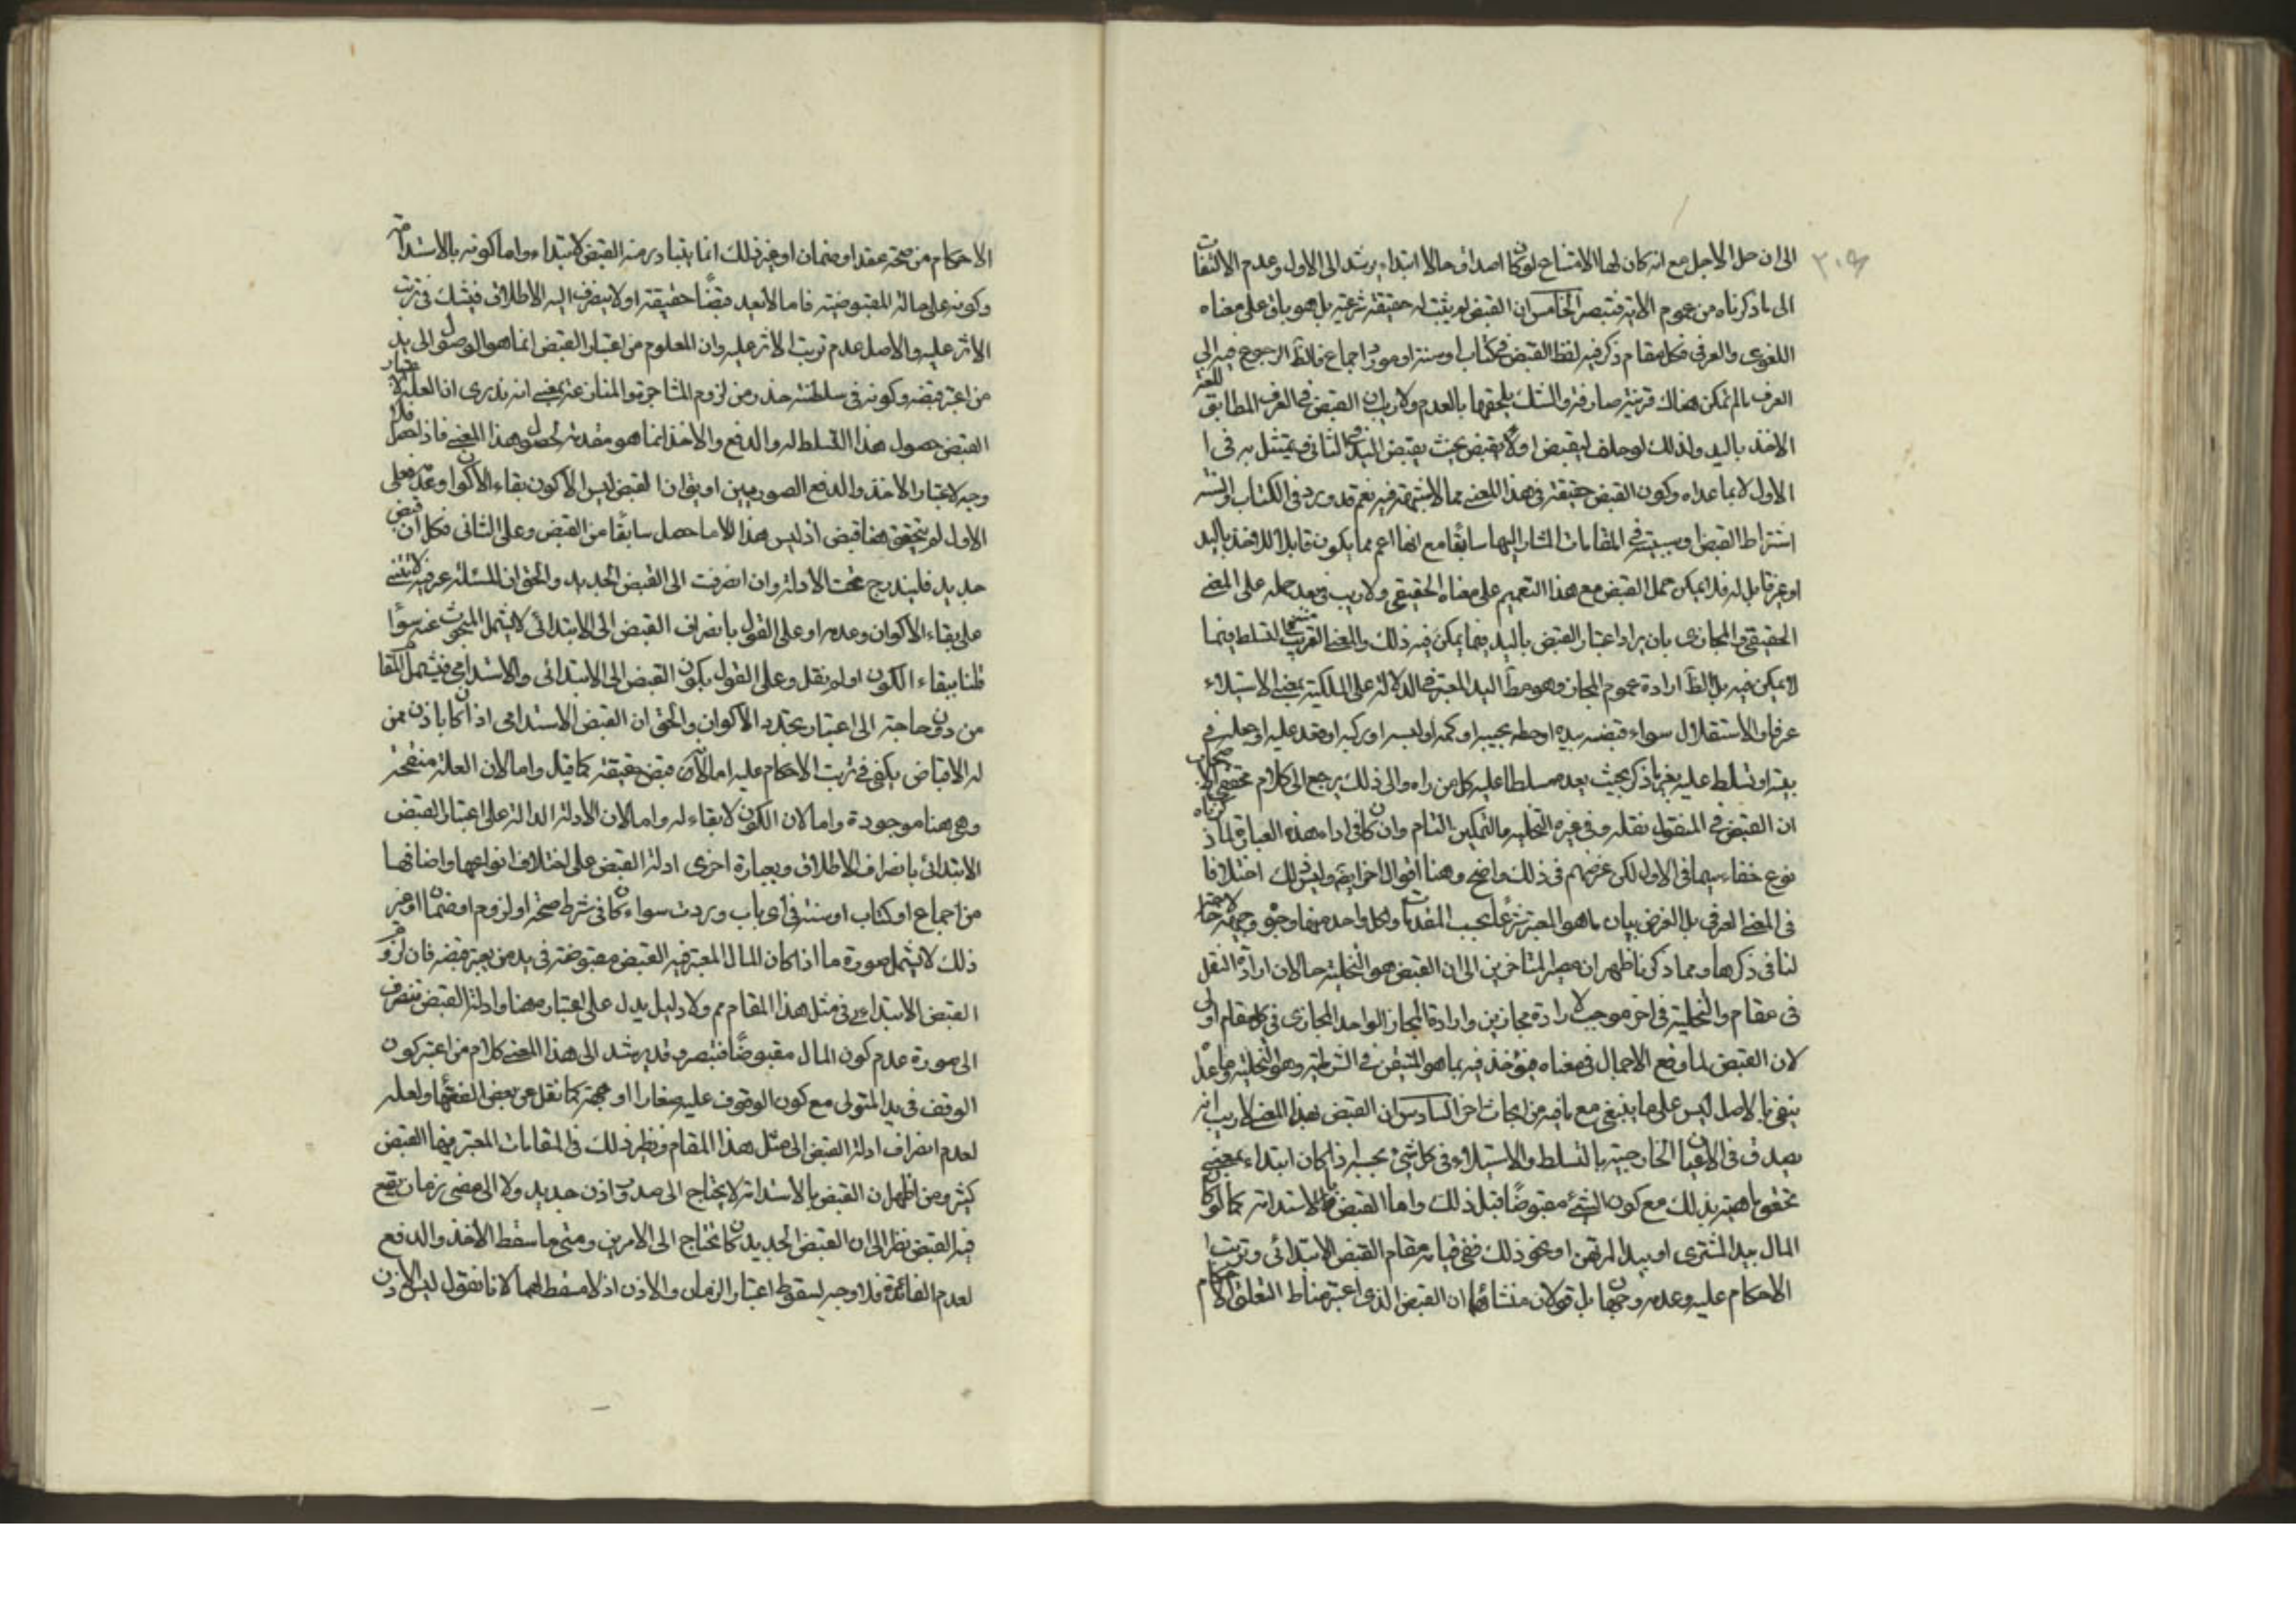 الى ان حل الاجل مع انه كان لها الامتناع لو كان اصداق حالا ابتداء يرشد الى الاول وعدم الالتفات
الى ما ذكرناه من عموم الادلة فتبصر الخامس ان القبض لم يثبت له حقيقة شرعية بل هو باق على معناه
اللغوى والعرفى فكل مقام ذكر فيه لفظ القبض فى كتاب او سنة او مورد اجماع فالظ الرجوع فيه الى
العرف ما لم تكن هناك قرينة صارفة والشك يلحقها بالعدم ولا ريب ان القبض فى العرف المطابق للغة
الاخذ باليد ولذلك لو حلف ليقبض او لا يقبض يحنث بقبض اليد فى الثانى ويمتثل به فى
الاول لا بما عداه وكون القبض حقيقة فى هذا المعنى مما لا شبهة فيه نعم قد ورد فى الكتاب والسنة
اشتراط القبض او سببيته فى المقامات المشار اليها سابقا مع انها اعم مما يكون قابلا للاخذ باليد
او غير قابل له فلا يمكن حمل القبض مع هذا التعميم على معناه الحقيقى ولا ريب فى بعد حمله على المعنى
الحقيقى والمجازى بان يراد اعتبار القبض باليد فيما يمكن فيه ذلك والمعنى القريب منه التسلط فيما
لا يمكن فيه بل الظ ارادة عموم المجاز وهو حظ اليد المعتبر فى الدلالة على الملكية بمعنى الاستيلاء
عرفا والاستقلال سواء قبضه بيده او حطه بجيبه او كمه او لبسه او ركبه او قعد عليه او جعله فى
بيته او تسلط عليه بغير ما ذكر بحيث يعد مسلطا عليه كل من راه والى ذلك يرجع كلام محققى الاصحاب
ان القبض فى المنقول نقله وفى غيره التخلية والتمكين التام وان كان فى اداء هذه العبارة لما ذكرناه
نوع خفاء سيما فى الاول لكن غرضهم فى ذلك واضح وهنا اقوال اخر ايضا وليس ذلك اختلافا
فى المعنى العرفى بل الغرض بيان ما هو المعتبر شرعا بحسب المقامات ولكل واحد منها وجوه وجيهة لا حاجة
لنا فى ذكرها ومما ذكرنا ظهر ان مصير المتاخرين الى ان القبض هو التخلية حالان ارادة النقل
فى مقام والتخلية فى اخر موجب لارادة مجازين وارادة المجاز الواحد المجازى فى كل مقام اولى
لان القبض لما وقع الاجمال فى معناه فيؤخذ فيه بما هو المتيقن فى الشرطية وهو التخلية وما عداه
ينفى بالاصل ليس على ما ينبغى مع ما فيه من ابحاث اخر السادس ان القبض بهذا المعنى لا ريب انه
يصدق فى الاعيان الخارجية بالتسلط والاستيلاء فى كل شئ بحسبه اذا كان ابتداء بمعنى
تحقق ماهيته بذلك مع كون الشئ مقبوضا قبل ذلك واما القبض بالاستدامة كما لو كان
المال بيد المشترى او بيد المرتهن او نحو ذلك ففى قيامه مقام القبض الابتدائى وترتب
الاحكام عليه وعدمه وجهان بل قولان منشائهما ان القبض الذى اعتبر مناط التعلق الاحكام
الاحكام من صحة عقد او ضمان او غير ذلك انما يتبادر منه القبض لابتداء واما كونه بالاستدامة
وكونه على حالة المقبوضية فاما لا يعد قبضا حقيقة او لا ينصرف اليه الاطلاق فيشك فى ترتب
الاثر عليه والاصل عدم ترتب الاثر عليه وان المعلوم من اعتبار القبض انما هو الوصول الى يد
من اعتبر قبضه وكونه فى سلطنته حذر من لزوم المشاجرة والمنازعة بمعنى انه ندرى ان العلة لاعتبار
القبض حصول هذا التسلط له والدفع والاخذ انما هو مقدمة لحصول هذا المعنى فاذا حصل فلا
وجه لاعتبار الاخذ والدفع الصوريين او يقال ان القبض ليس الا كون بقاء الاكوان وعدمه فعلى
الاول لم يتحقق هنا قبض اذ ليس هذا الا ما حصل سابقا من القبض وعلى الثانى فكل ان قبض
جديد فليندرج تحت الادلة وان انصرفت الى القبض الجديد والحق ان المسئلة عرفية لا تبتنى
على بقاء الاكوان وعدمه او على القول بانصراف القبض الى الابتدائى لا يشمل المبحوث عنه سواء
قلنا ببقاء الكون او لم نقل وعلى القول بكون القبض الى الابتدائى والاستدامى فيشمل المقام
من دون حاجة الى اعتبار تجدد الاكوان والحق ان القبض الاستدامى اذا كان باذن ممن
له الاقباض يكفى فى ترتب الاحكام عليه اما لانه قبض حقيقة كما قيل واما لان العلة منقحة
وهى هنا موجودة واما لان الكون لا بقاء له واما لان الادلة الدالة على اعتبار القبض
الابتدائى بانصراف الاطلاق وبعبارة اخرى ادلة القبض على اختلاف انواعها واضافتها
من اجماع او كتاب او سنة فى اى باب وردت سواء كان فى شرط صحة او لزوم او ضمان او غير
ذلك لا يشمل صورة ما اذا كان المال المعتبر فيه القبض مقبوضة فى يد من يعتبر قبضه فان لزوم
القبض الابتداء فى مثل هذا المقام مم ولا دليل يدل على اعتباره هنا وادلة القبض تنصرف
الى صورة عدم كون المال مقبوضا فتبصر وقد يرشد الى هذا المعنى كلام من اعتبر كون
الوقف فى يد المتولى مع كون الموقوف عليه صغارا او جهة كما نقل عن بعض الفقهاء ولعله
لعدم انصراف ادلة القبض الى مثل هذا المقام ونظير ذلك فى المقامات المعتبر فيها القبض
كثير ومن اظهر ان القبض بالاستدامة لا يحتاج الى صدور اذن جديد ولا الى مضى زمان يقع
فيه القبض نظر الى ان القبض الجديد كان يحتاج الى الامرين ومتى ما سقط الاخذ والدفع
لعدم الفائدة فلا وجه لسقوط اعتبار الزمان والاذن اذ لا مسقط لهما لانا نقول ليس الاذن